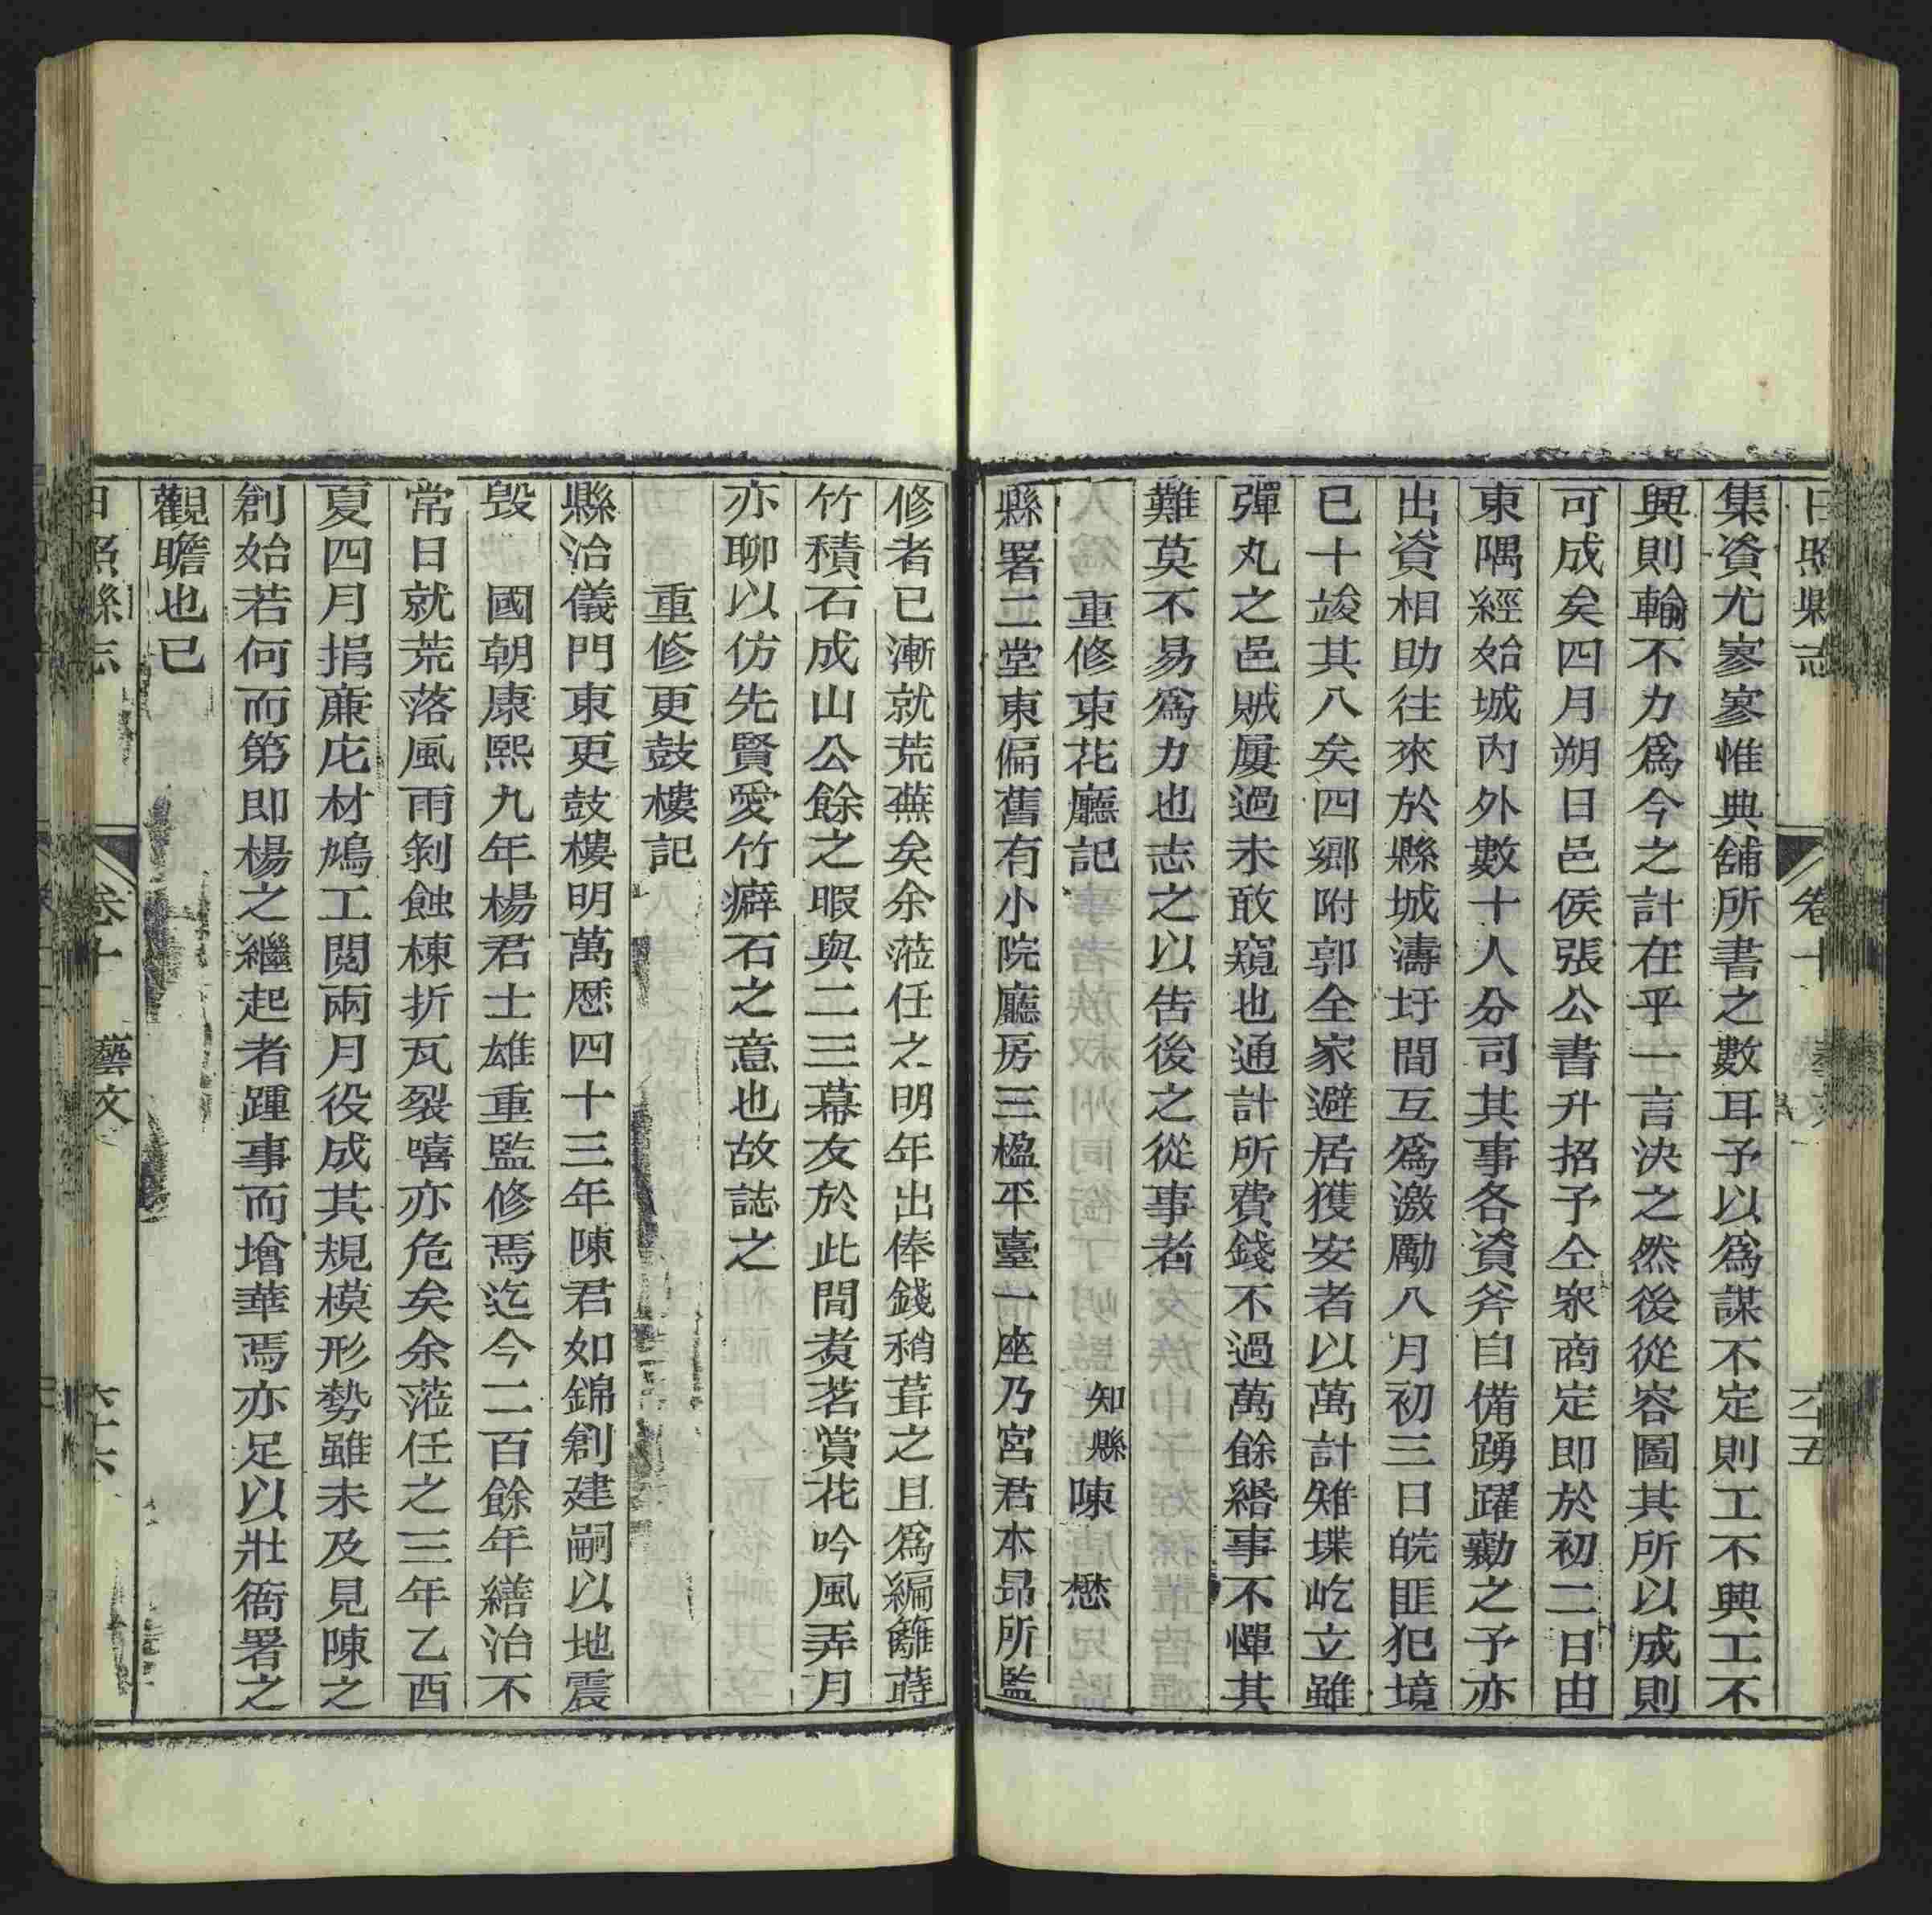 日照縣志
卷十
藝文
六十五
集資尤寥寥惟典舖所書之數耳予以爲謀不定則工不興工不
興則輸不力爲今之計在乎一言決之然後從容圖其所以成則
可成矣四月朔日邑侯張公書升招予仝眾商定即於初二日由
東隅經始城內外數十人分司其事各資斧自備踴躍勷之予亦
出資相助往來於縣城濤圩間互爲激勵八月初三日皖匪犯境
已十竣其八矣四鄉附郭全家避居獲安者以萬計雉堞屹立雖
彈丸之邑賊屢過未敢窺也通計所費錢不過萬餘緡事不憚其
難莫不易爲力也志之以告後之從事者
重修東花廳記 知縣陳懋
縣署二堂東偏舊有小院廳房三楹平臺一座乃宮君本昻所監
修者已漸就荒蕪矣余蒞任之明年出俸錢稍葺之且爲編籬蒔
竹積石成山公餘之暇與二三幕友於此間煑茗賞花吟風弄月
亦聊以仿先賢愛竹癖石之意也故誌之
重修更鼓樓記
縣治儀門東更鼓樓明萬厯四十三年陳君如錦創建嗣以地震
毁 國朝康熙九年楊君士雄重監修焉迄今二百餘年繕治不
常日就荒落風雨剝蝕棟折瓦裂嘻亦危矣余蒞任之三年乙酉
夏四月捐廉庀材鳩工閱兩月役成其規模形勢雖未及見陳之
創始若何而第即楊之繼起者踵事而增華焉亦足以壯衙署之
觀瞻也已
日照縣志
卷十
藝文
六十六